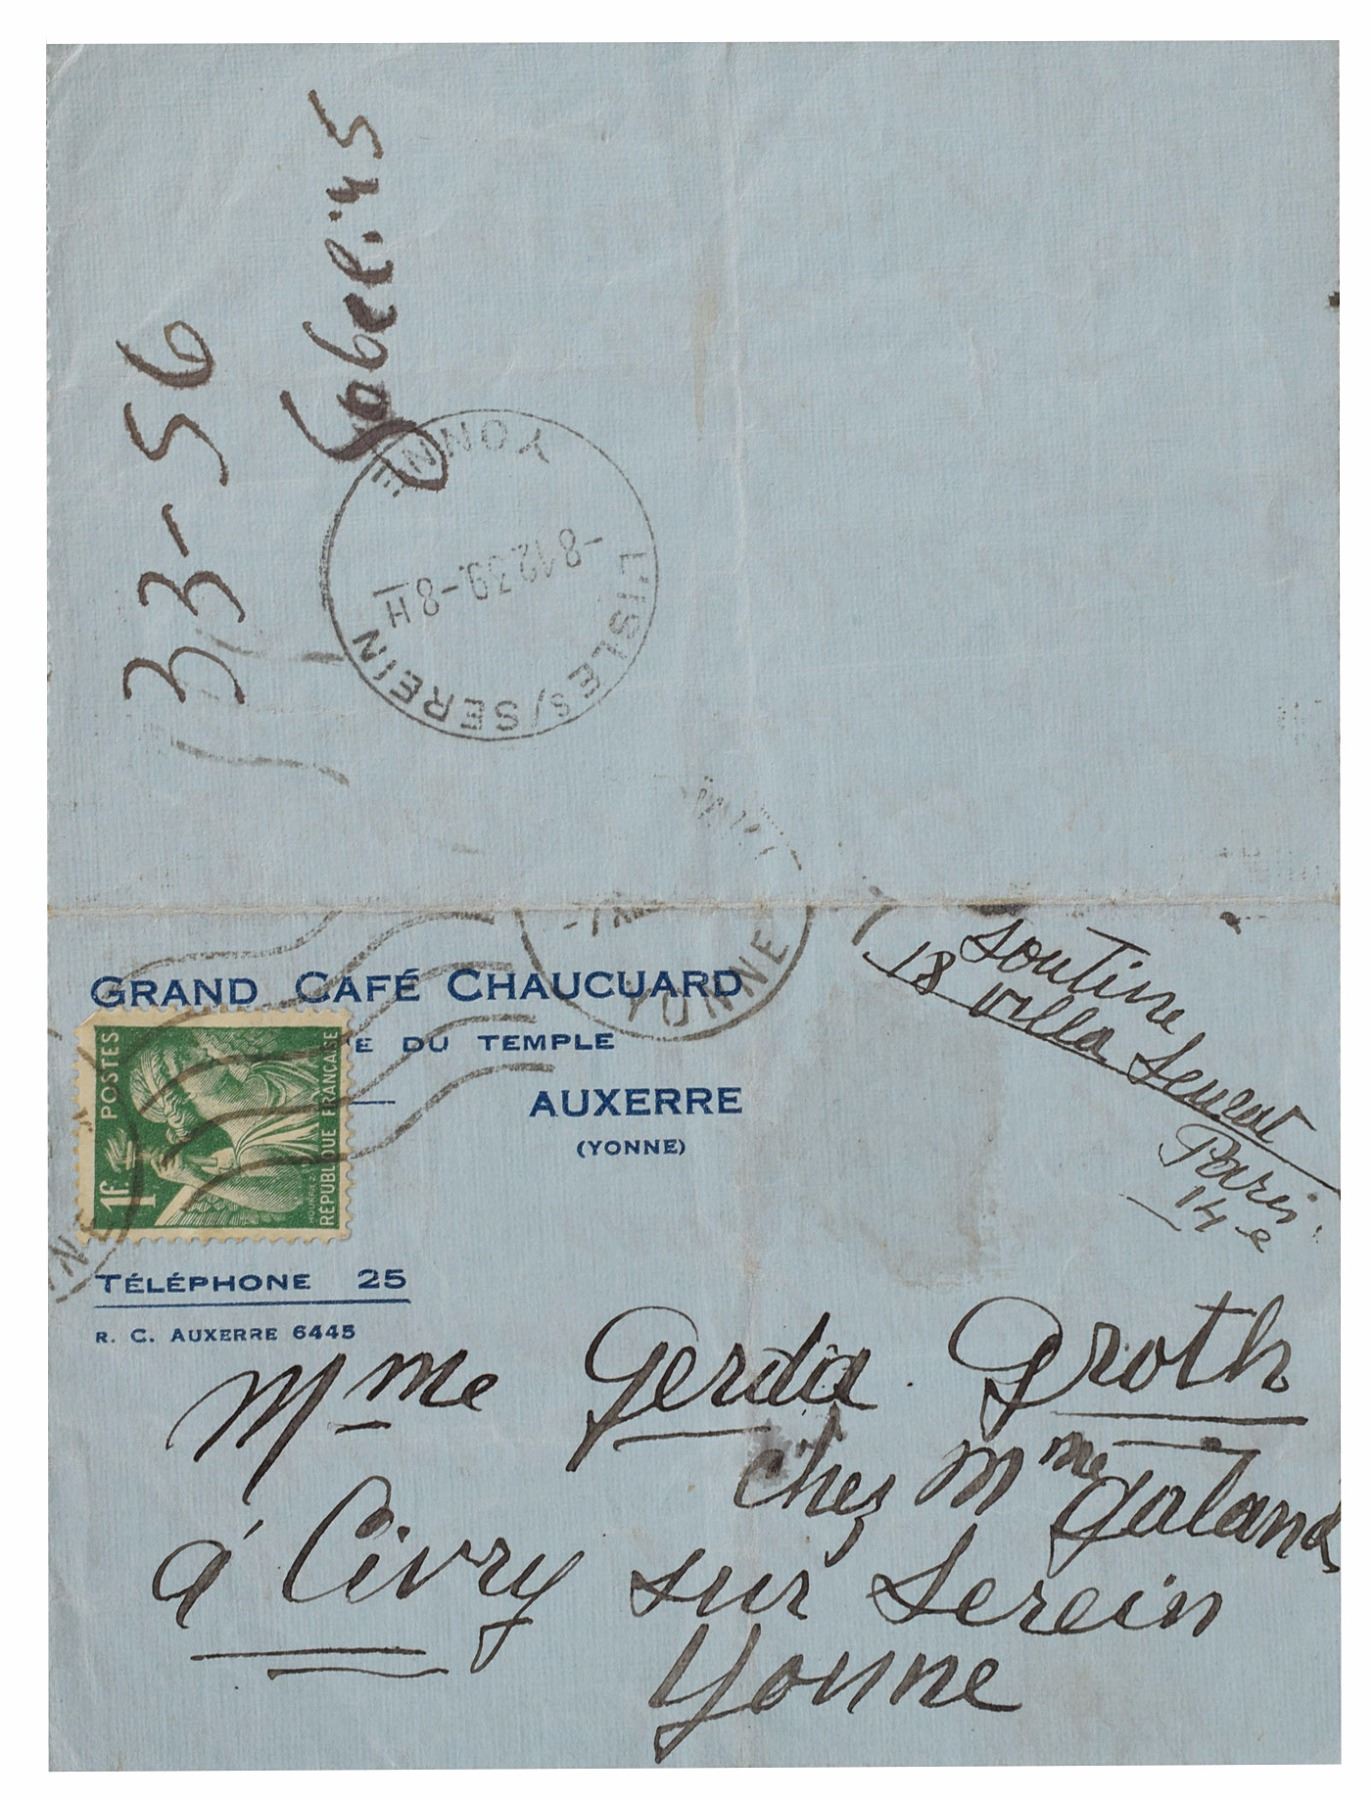 33-56
Gobelins
YONNE
-8.12.39.-8H
L'ISLE S/SEREIN
YONNE
GRAND CAFÉ CHAUCUARD
E DU TEMPLE
AUXERRE
(YONNE)
POSTES
1F.
RÉPUBLIQUE FRANÇAISE
TÉLÉPHONE 25
R. C. AUXERRE 6445
Soutine
18 villa Seurat
Paris
14e
Mme Gerda Groth
chez Mme Galand
à Civry sur Serein
Yonne